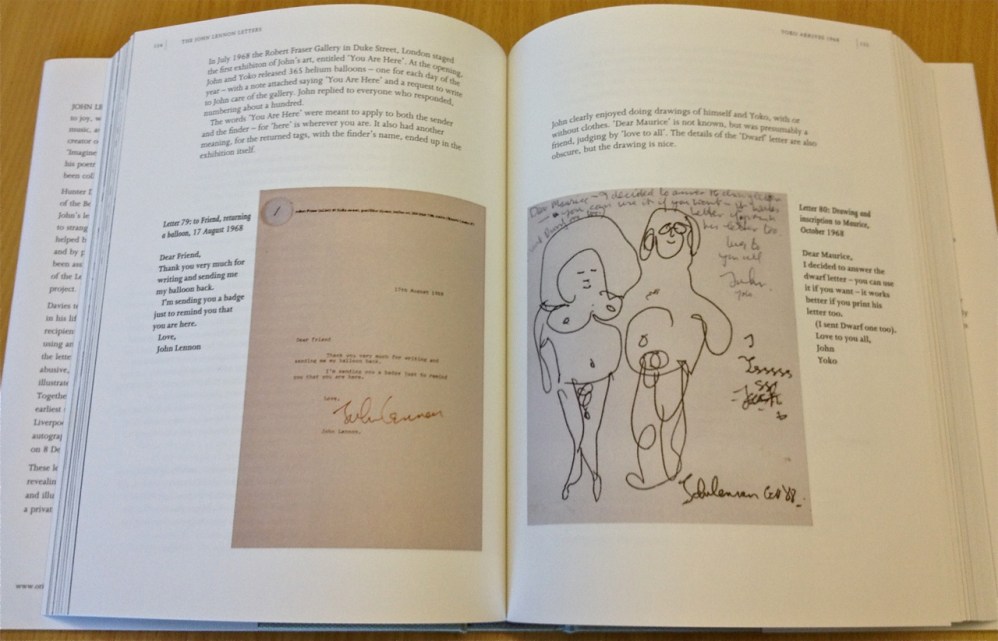 JOHN LE
to joy, w
music, a
creator o
'Imagine
his poetr
been coll
Hunter D
of the Be
John's le
to strang
helped h
and by p
been ass
of the Le
project.
Davies t
in his lif
recipien
uning an
the lette
abusive,
illustrate
Togethe
earliest
Liverpo
autograp
on 8 De
These le
revealin
and illu
a privat
124 THE JOHN LENNON LETTERS
In July 1968 the Robert Fraser Gallery in Duke Street, London staged
the first exhibition of John's art, entitled 'You Are Here'. At the opening,
John and Yoko released 365 helium balloons – one for each day of the
year – with a note attached saying 'You Are Here' and a request to write
to John care of the gallery. John replied to everyone who responded,
numbering about a hundred.
The words 'You Are Here' were meant to apply to both the sender
and the finder – for 'here' is wherever you are. It also had another
meaning, for the returned tags, with the finder's name, ended up in the
exhibition itself.
Letter 79: to Friend, returning
a balloon, 17 August 1968
Dear Friend,
Thank you very much for
writing and sending me
my balloon back.
I'm sending you a badge
just to remind you that
you are here.
Love,
John Lennon
17th August 1968
Dear Friend
Thank you very much for writing and
sending me my balloon back.
I'm sending you a badge just to remind
you that you are here.
Love,
John Lennon
John Lennon.
YOKO ARRIVES 1968 125
John clearly enjoyed doing drawings of himself and Yoko, with or
without clothes. 'Dear Maurice' is not known, but was presumably a
friend, judging by 'love to all'. The details of the 'Dwarf' letter are also
obscure, but the drawing is nice.
Dear Maurice – I decided to answer the dwarf letter
– you can use it if you want – it works
letter if you print
his letter too.
love to
you all
John
Yoko
John Lennon Oct '68.
Letter 80: Drawing and
inscription to Maurice,
October 1968
Dear Maurice,
I decided to answer the
dwarf letter – you can use
it if you want – it works
better if you print his
letter too.
(I sent Dwarf one too).
Love to you all,
John
Yoko